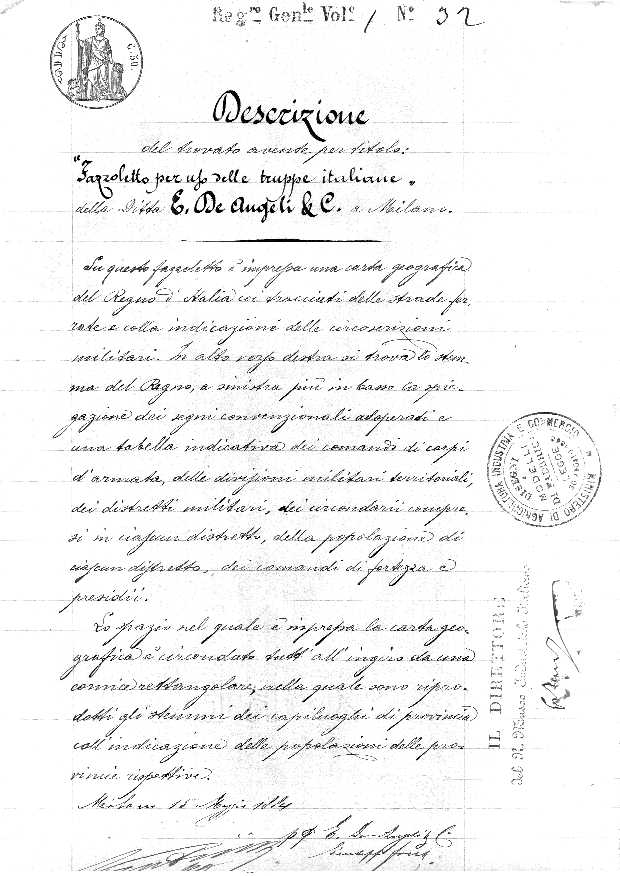 Reg.ro Gen.le Vol.e 1 N.o 32
C. 50
Descrizione
del trovato avente per titolo:
"Fazzoletto per uso delle truppe italiane"
della Ditta E. De Angeli & C. a Milano.
Su questo fazzoletto è impressa una carta geografica
del Regno d'Italia coi tracciati delle strade fer-
rate e colla indicazione delle circoscrizioni
militari. In alto verso destra si trova lo stem-
ma del Regno, a sinistra più in basso la spie-
gazione dei segni convenzionali adoperati e
una tabella indicativa dei comandi di corpi
d'armata, delle divisioni militari territoriali,
dei distretti militari, dei circondarii compre-
si in ciascun distretto, della popolazione di
ciascun distretto, dei comandi di fortezza e
presidii.
Lo spazio nel quale è impressa la carta geo-
grafica è circondato tutt'all'ingiro da una
cornice rettangolare, nella quale sono ripro-
dotti gli stemmi dei capiluoghi di provincia
coll'indicazione delle popolazioni delle pro-
vincie rispettive.
Milano 15 Maggio 1884
pp E. De Angeli & C.
Giuseppe
MINISTERO DI AGRICOLTURA INDUSTRIA E COMMERCIO
MODELLI
DI FABBRICA
IL DIRETTORE
del R. Museo Industriale Italiano